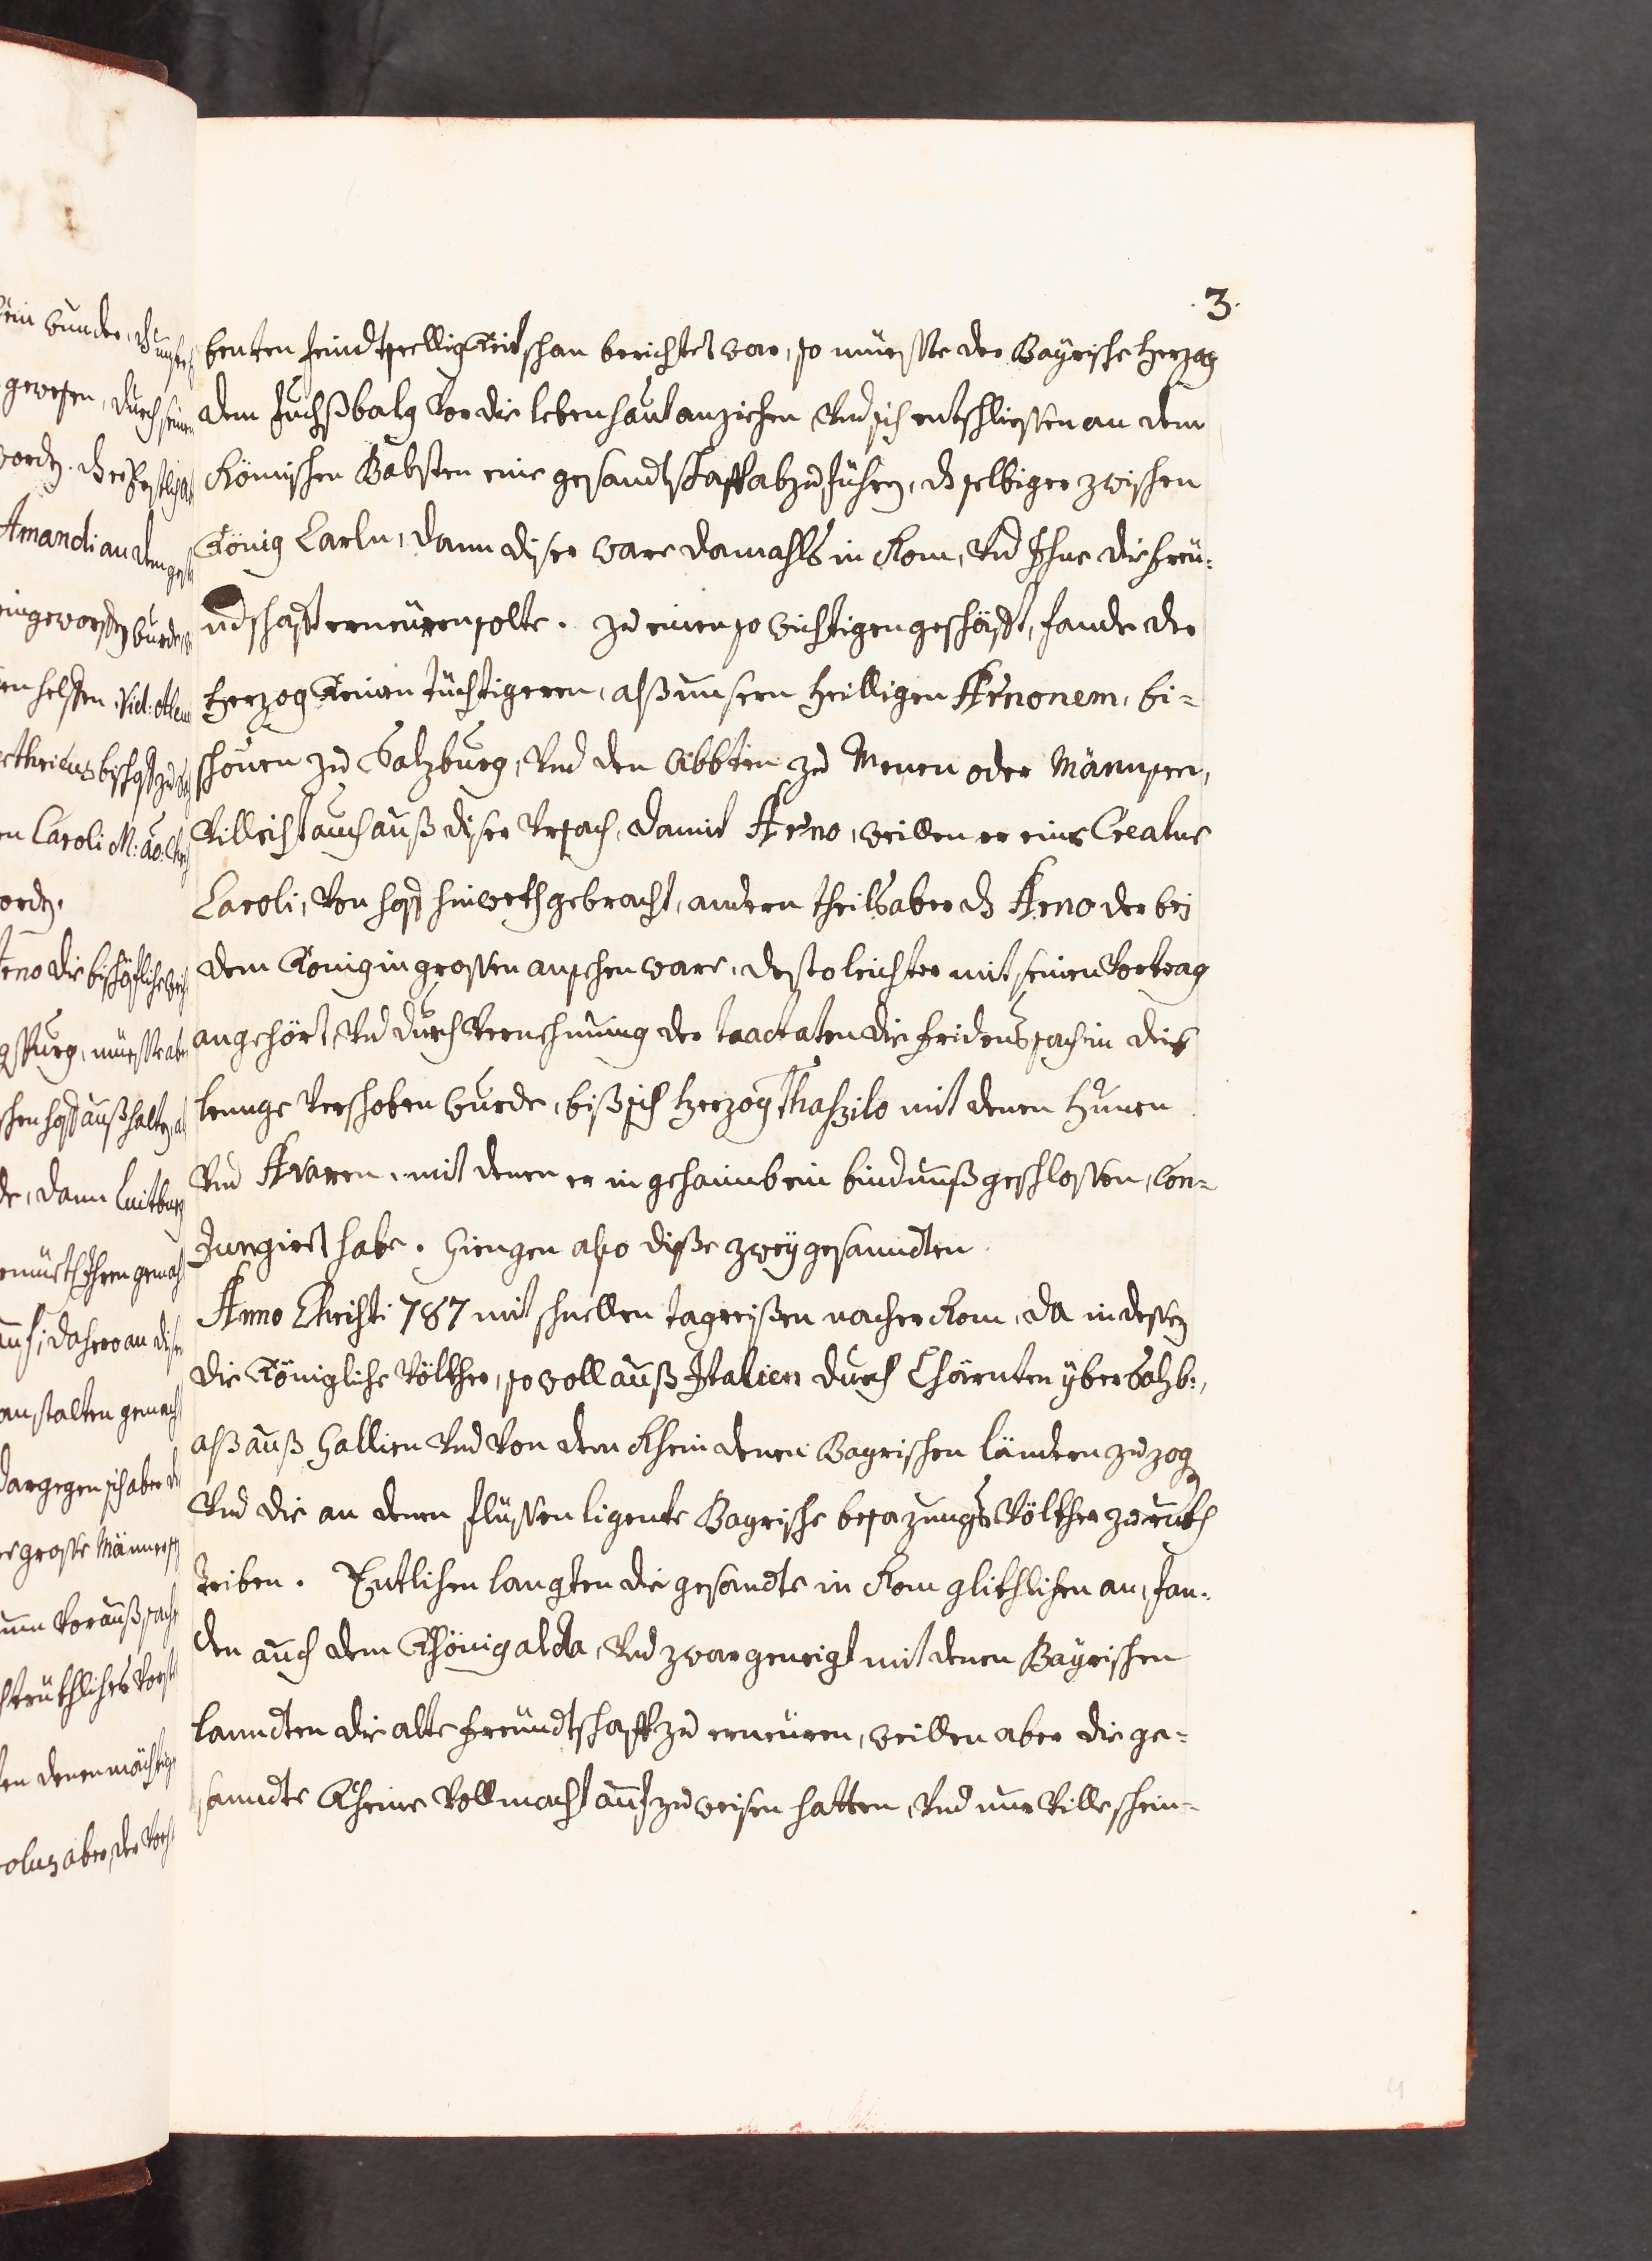 .3.
benten feindtseelligkeit schan berichtet war, so müeßte der Bayrische Herzog
dem fuchßbalg vor die lebenhaut anziehen vnd sich entschliessen an dem
Römischen Babsten eine gesandtschafft abzuführen, dz selbiger zwischen
König Carln, dann diser ware damahls in Rom, vnd Ihne die freü-
ndschafft erneüren solte. zu einen so wichtigen geschäfft, fande der
Herzog keinen tüchtigeren, alß unsern heilligen Arnonem, bi-
schouen zu Salzburg, vnd den Abbten zu Menen oder Männsee,
villeicht auch auß diser vrsach, damit Arno, weillen er eine Creatur
Caroli, von hoff hinwekh gebracht, andern theils aber dz Arno der bei
dem König in grossen ansehen ware, desto leichter mit seinen vortrag
angehört vnd durch vernehmung der tractaten die fridens sach in die
lennge verschoben wurde, biß sich Herzog Thaßzilo mit denen Hunen
vnd Avaren, mit denen er in gehaimb ein bindnuß geschlossen, con-
jungiert habe. Giengen also disse zwey gesanndten
Anno Christi 787 mit schnellen tagreißen nacher Rom, da in dessen
die Königliche völkher, so woll auß Italien durch Chärnten yber Salzb:,
alß auß Gallien vnd von dem Rhein denen Bayrischen ländern zu zog
vnd die an denen flüssen ligente Bayrische besazungs völkher zurukh
treiben. Entlichen langten die gesandte in Rom glükhlichen an, fan-
den auch dem Khönig alda, vnd zwar geneigt mit denen Bayrischen
lanndten die alte freündtschafft zu erneüren, weillen aber die ge-
sanndte kheine vollmacht auf zu weisen hatten, vnd nur ville schein-